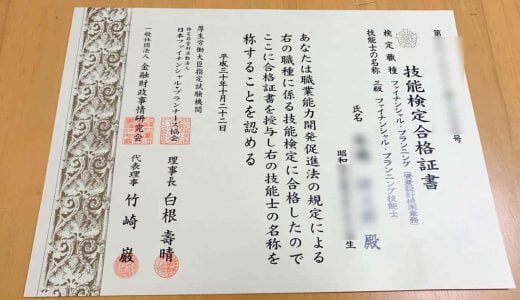 第
号
技能検定合格証書
検定職種 ファイナンシャル・プランニング(資産設計提案業務)
技能士の名称 三級ファイナンシャル・プランニング技能士
氏名
殿
昭和
生
あなたは職業能力開発促進法の規定による
右の職種に係る技能検定に合格したので
ここに合格証書を授与し右の技能士の名称を
称することを認める
平成三十年十月二十二日
厚生労働大臣指定試験機関
特定非営利活動法人
日本ファイナンシャル・プランナーズ協会
理事長 白根壽晴
一般社団法人 金融財政事情研究会
代表理事 竹崎巌